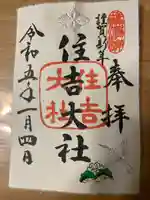 奉拝
謹賀新年
住吉大社
住吉
大社
令和五年一月四日